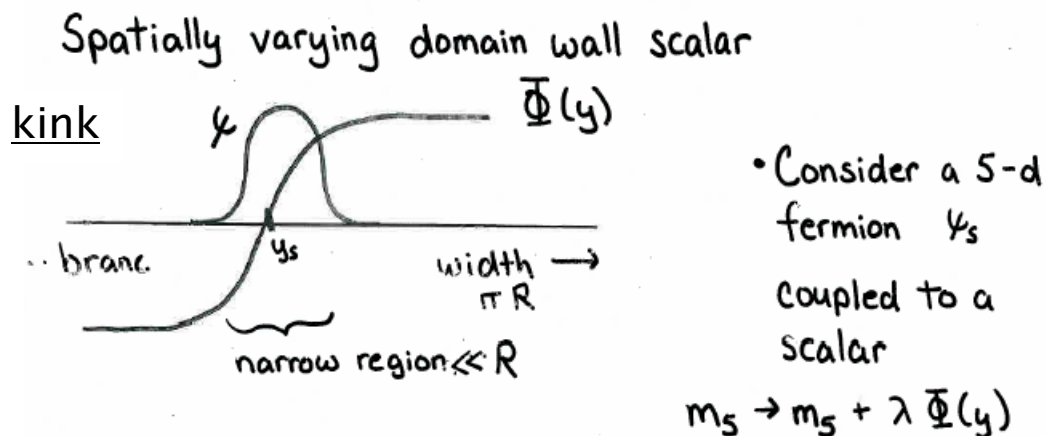 Spatially varying domain wall scalar
kink
ψ
Φ(y)
y₅
.. brane.
width →
π R
narrow region << R
• Consider a 5-d
fermion ψ₅
coupled to a
scalar
m₅ → m₅ + λ Φ(y)